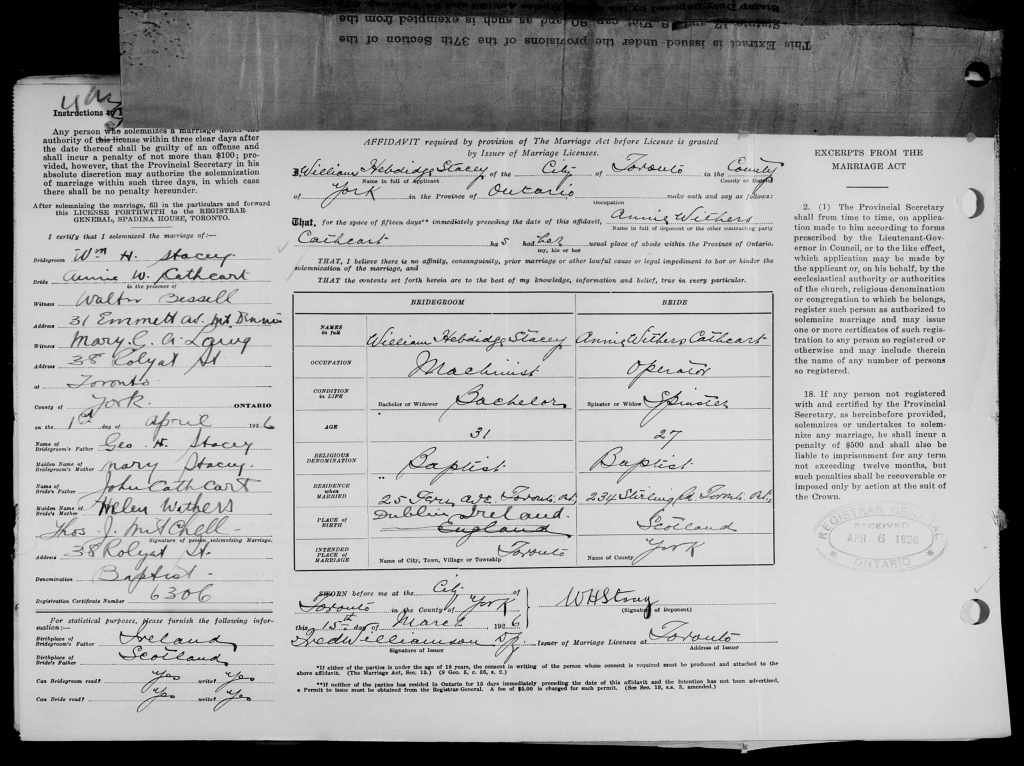 This Extract is issued under the provisions of the 37th Section of the
and as such is exempted from the
Instructions
Any person who solemnizes a marriage under the
authority of this license within three clear days after
the date thereof shall be guilty of an offense and
shall incur a penalty of not more than $100; pro-
vided, however, that the Provincial Secretary in his
absolute discretion may authorize the solemnization
of marriage within such three days, in which case
there shall be no penalty hereunder.
After solemnizing the marriage, fill in the particulars and forward
this LICENSE FORTHWITH to the REGISTRAR-
GENERAL, SPADINA HOUSE, TORONTO.
I certify that I solemnized the marriage of:—
Bridegroom Wm H. Stacey
Bride Annie W. Cathcart
in the presence of
Witness Walter Bessell
Address 31 Emmett av. Mt. Dennis
Witness Mary C. A. Laing
Address 38 Rolyat St
at Toronto
County of York. ONTARIO
on the 1st day of April 1926
Name of Bridegroom's Father Geo H. Stacey
Maiden Name of Bridegroom's Mother Mary Stacey.
Name of Bride's Father John Cathcart
Maiden Name of Bride's Mother Helen Withers
Thos. J. Mitchell
Signature of person solemnizing Marriage.
Address 38 Rolyat St.
Denomination Baptist-
Registration Certificate Number 6306
For statistical purposes, please furnish the following infor-
mation:—
Birthplace of Bridegroom's Father Ireland
Birthplace of Bride's Father Scotland
Can Bridegroom read? Yes write? Yes
Can Bride read? Yes write? Yes
AFFIDAVIT required by provision of The Marriage Act before License is granted
by Issuer of Marriage Licenses.
I, William Hebdidge Stacey of the City of Toronto in the County
Name in full of applicant County or District
of York in the Province of Ontario make oath and say as follows:
Occupation
That, for the space of fifteen days** immediately preceding the date of this affidavit, Annie Withers
Name in full of deponent or the other contracting party
Cathcart has had her usual place of abode within the Province of Ontario.
my, his or her
THAT, I believe there is no affinity, consanguinity, prior marriage or other lawful cause or legal impediment to bar or hinder the
solemnization of the marriage, and
THAT the contents set forth herein are to the best of my knowledge, information and belief, true in every particular.
BRIDEGROOM BRIDE
NAMES in full William Hebdidge Stacey Annie Withers Cathcart
OCCUPATION Machinist Operator
CONDITION in LIFE Bachelor or Widower Bachelor Spinster or Widow Spinster
AGE 31 27
RELIGIOUS DENOMINATION Baptist Baptist
RESIDENCE WHEN MARRIED 25 Ave Toronto Ont, 234 Stirling Toronto Ont,
PLACE OF BIRTH Dublin Ireland. England Scotland
INTENDED PLACE OF MARRIAGE Name of City, Town, Village or Township Toronto Name of County York
SWORN before me at the City of
Toronto in the County of York
this 15th day of March 1926
(Signature of Deponent)
Fred Williamson Issuer of Marriage Licenses at Toronto
Signature of Issuer Address of Issuer
*If either of the parties is under the age of 18 years, the consent in writing of the person whose consent is required must be produced and attached to the
above affidavit. (The Marriage Act, Sec. 15.)
**If neither of the parties has resided in Ontario for 15 days immediately preceding the date of this affidavit and the intention has not been advertised,
a Permit to issue must be obtained from the Registrar-General. A fee of $5.00 is charged for such permit. (See Sec. 19, s.s. 3, amended.)
EXCERPTS FROM THE
MARRIAGE ACT
2. (1) The Provincial Secretary
shall from time to time, on applica-
tion made to him according to forms
prescribed by the Lieutenant-Gov-
ernor in Council, or to the like effect,
which application may be made by
the applicant or, on his behalf, by the
ecclesiastical authority or authorities
of the church, religious denomination
or congregation to which he belongs,
register such person as authorized to
solemnize marriage and may issue
one or more certificates of such regis-
tration to any person so registered or
otherwise and may include therein
the name of any number of persons
so registered.
18. If any person not registered
with and certified by the Provincial
Secretary, as hereinbefore provided,
solemnizes or undertakes to solem-
nize any marriage, he shall incur a
penalty of $500 and shall also be
liable to imprisonment for any term
not exceeding twelve months, but
such penalties shall be recoverable or
imposed only by action at the suit of
the Crown.
REGISTRAR GENERAL
RECEIVED
APR 6 1926
ONTARIO